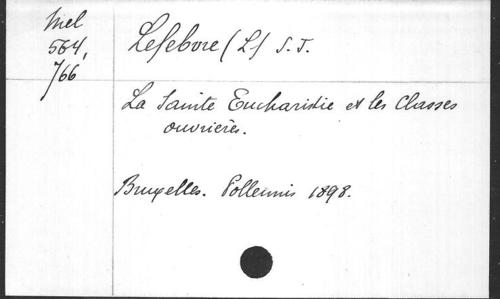 Mel
564,
766
Lefebvre (L) S. J.
La Sainte Eucharistie et les Classes
ouvrières.
Bruxelles. Polleunis 1898.